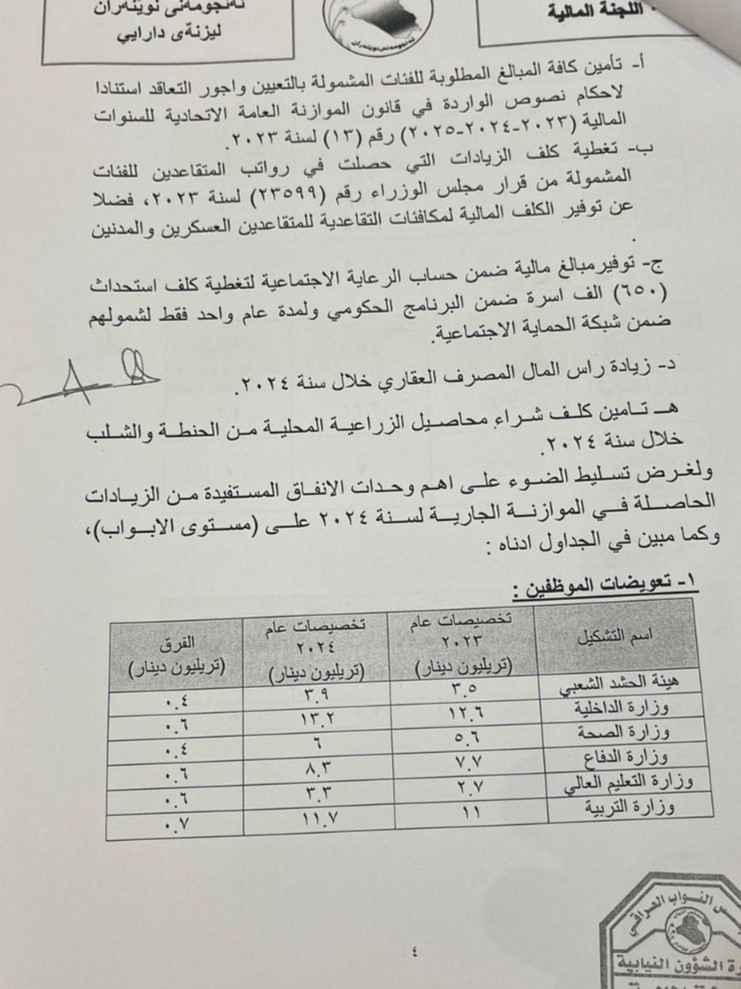 اللجنة المالية
ئەنجومەنی نوێنەران
لیژنەی دارایی
ئەنجومەنی نوێنەران
أ- تأمين كافة المبالغ المطلوبة للفئات المشمولة بالتعيين واجور التعاقد استنادا
لاحكام نصوص الواردة في قانون الموازنة العامة الاتحادية للسنوات
المالية (٢٠٢٣-٢٠٢٤-٢٠٢٥) رقم (١٣) لسنة ٢٠٢٣.
ب- تغطية كلف الزيادات التي حصلت في رواتب المتقاعدين للفئات
المشمولة من قرار مجلس الوزراء رقم (٢٣٥٩٩) لسنة ٢٠٢٣، فضلا
عن توفير الكلف المالية لمكافئات التقاعدية للمتقاعدين العسكرين والمدنين
.
ج- توفير مبالغ مالية ضمن حساب الرعاية الاجتماعية لتغطية كلف استحداث
(٦٥٠) الف اسرة ضمن البرنامج الحكومي ولمدة عام واحد فقط لشمولهم
ضمن شبكة الحماية الاجتماعية.
د- زيادة راس المال المصرف العقاري خلال سنة ٢٠٢٤.
هـ- تامين كلف شراء محاصيل الزراعية المحلية من الحنطة والشلب
خلال سنة ٢٠٢٤.
ولغرض تسليط الضوء على اهم وحدات الانفاق المستفيدة من الزيادات
الحاصلة في الموازنة الجارية لسنة ٢٠٢٤ على (مستوى الابواب)،
وكما مبين في الجداول ادناه :
١- تعويضات الموظفين :
اسم التشكيل تخصيصات عام ٢٠٢٣ (تريليون دينار) تخصيصات عام ٢٠٢٤ (تريليون دينار) الفرق (تريليون دينار)
هيئة الحشد الشعبي ٣.٥ ٣.٩ ٠.٤
وزارة الداخلية ١٢.٦ ١٣.٢ ٠.٦
وزارة الصحة ٥.٦ ٦ ٠.٤
وزارة الدفاع ٧.٧ ٨.٣ ٠.٦
وزارة التعليم العالي ٢.٧ ٣.٣ ٠.٦
وزارة التربية ١١ ١١.٧ ٠.٧
النواب العراقي
الشؤون النيابية
٤